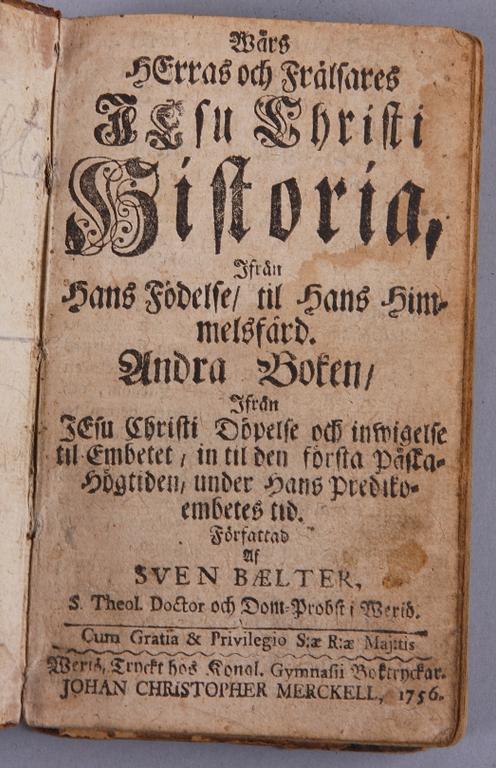 Wårs
HErras och Frälsares
JEsu Christi
Historia,
Ifrån
Hans Födelse/ til Hans Him-
melsfärd.
Andra Boken/
Ifrån
JEsu Christi Döpelse och inwigelse
til Embetet, in til den första Påska-
Högtiden, under Hans Prediko-
embetes tid.
Författad
Af
SVEN BÆLTER,
S. Theol. Doctor och Dom-Probst i Weriö.
Cum Gratia & Privilegio S:æ R:æ Maj:tis
Weriö, Tryckt hos Kongl. Gymnasii Boktryckar.
JOHAN CHRISTOPHER MERCKELL, 1756.